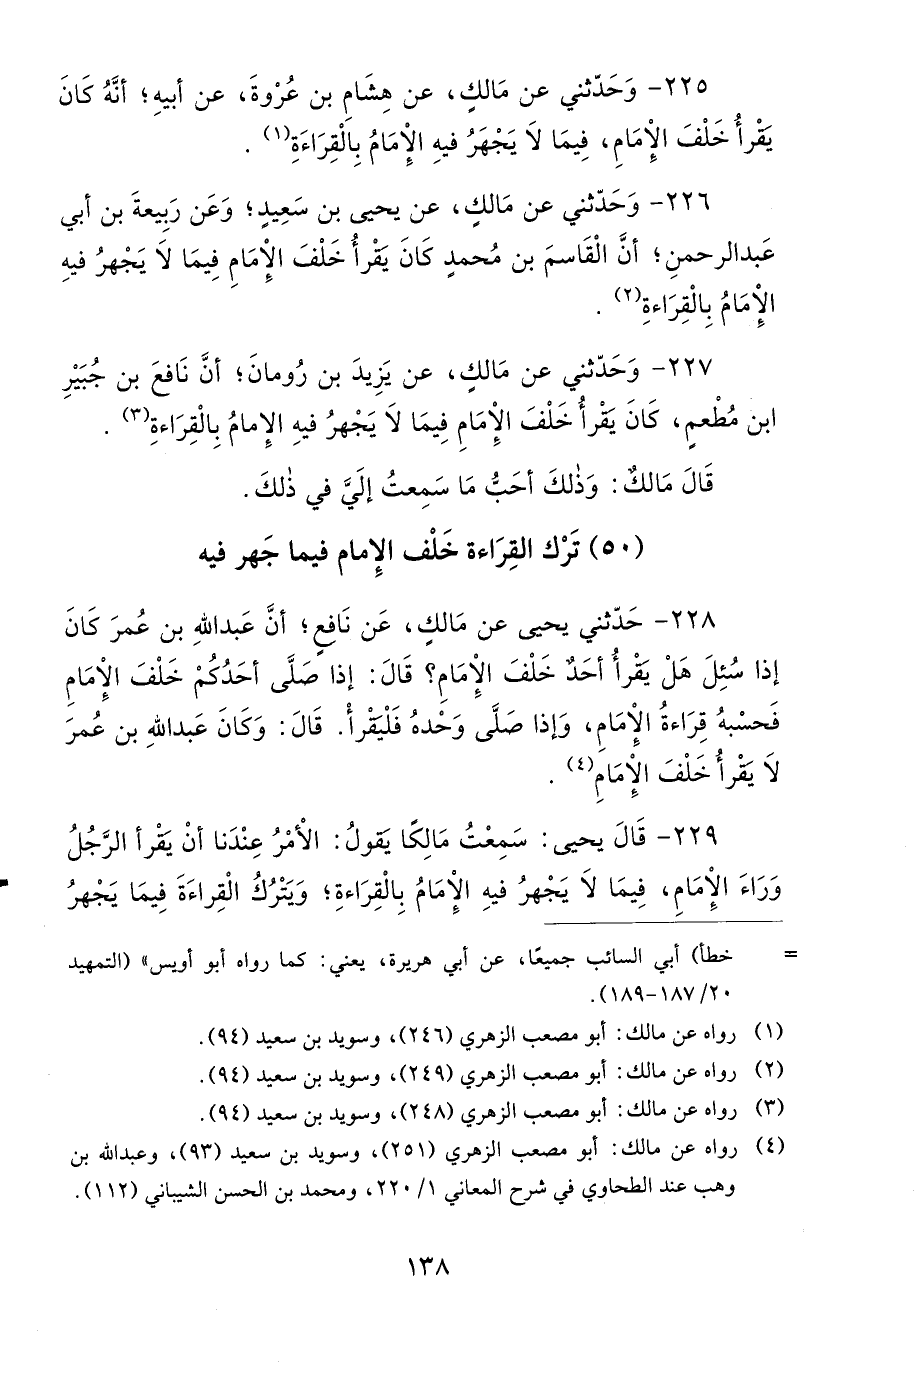 ٢٢٥- وَحَدّثني عن مَالكٍ، عن هِشَامِ بن عُرْوةَ، عن أبيهِ؛ أنَّهُ كَانَ
يَقْرأُ خَلْفَ الإْمَامِ، فِيمَا لَا يَجْهَرُ فيهِ الإْمَامُ بِالْقِرَاءَةِ(١) .
٢٢٦- وَحَدّثني عن مَالكٍ، عن يحيى بن سَعِيدٍ؛ وَعَن رَبِيعةَ بن أبي
عَبدالرحمنِ؛ أنَّ الْقَاسمَ بن مُحمدٍ كَانَ يَقْرأُ خَلْفَ الإْمَامِ فِيمَا لَا يَجْهرُ فيهِ
الإْمَامُ بِالْقِرَاءةِ(٢) .
٢٢٧- وَحَدّثني عن مَالكٍ، عن يَزِيدَ بن رُومانَ؛ أنَّ نَافعَ بن جُبَيْرِ
ابن مُطْعمٍ، كَانَ يَقْرأُ خَلْفَ الإْمَامِ فِيمَا لَا يَجْهرُ فيهِ الإمامُ بِالْقِرَاءةِ(٣) .
قَالَ مَالكٌ: وَذٰلكَ أحَبُّ مَا سَمِعتُ إلَيَّ في ذٰلكَ.
(٥٠) تَرْك القِرَاءة خَلْف الإمام فيما جَهر فيه
٢٢٨- حَدّثني يحيى عن مَالكٍ، عَن نَافعٍ؛ أنَّ عَبداللهِ بن عُمرَ كَانَ
إذا سُئِلَ هَلْ يَقْرأُ أحَدٌ خَلْفَ الإْمَامِ؟ قَالَ: إذا صَلَّى أحَدُكُمْ خَلْفَ الإْمَامِ
فَحسْبهُ قِرَاءةُ الإْمَامِ، وَإذا صَلَّى وَحْدهُ فَلْيَقْرأْ. قَالَ: وَكَانَ عَبداللهِ بن عُمرَ
لَا يَقْرأُ خَلْفَ الإْمَامِ(٤) .
٢٢٩- قَالَ يحيى: سَمِعْتُ مَالِكًا يَقولُ: الأْمْرُ عِنْدَنا أنْ يَقْرأ الرَّجُلُ
وَرَاءَ الإْمَامِ، فِيمَا لَا يَجْهرُ فيهِ الإْمَامُ بِالْقِرَاءةِ؛ وَيَتْرُكُ الْقِراءَةَ فِيمَا يَجْهرُ
= خطأ) أبي السائب جميعًا، عن أبي هريرة، يعني: كما رواه أبو أويس» (التمهيد
٢٠/ ١٨٧-١٨٩).
(١) رواه عن مالك: أبو مصعب الزهري (٢٤٦)، وسويد بن سعيد (٩٤).
(٢) رواه عن مالك: أبو مصعب الزهري (٢٤٩)، وسويد بن سعيد (٩٤).
(٣) رواه عن مالك: أبو مصعب الزهري (٢٤٨)، وسويد بن سعيد (٩٤).
(٤) رواه عن مالك: أبو مصعب الزهري (٢٥١)، وسويد بن سعيد (٩٣)، وعبدالله بن
وهب عند الطحاوي في شرح المعاني ١/ ٢٢٠، ومحمد بن الحسن الشيباني (١١٢).
١٣٨